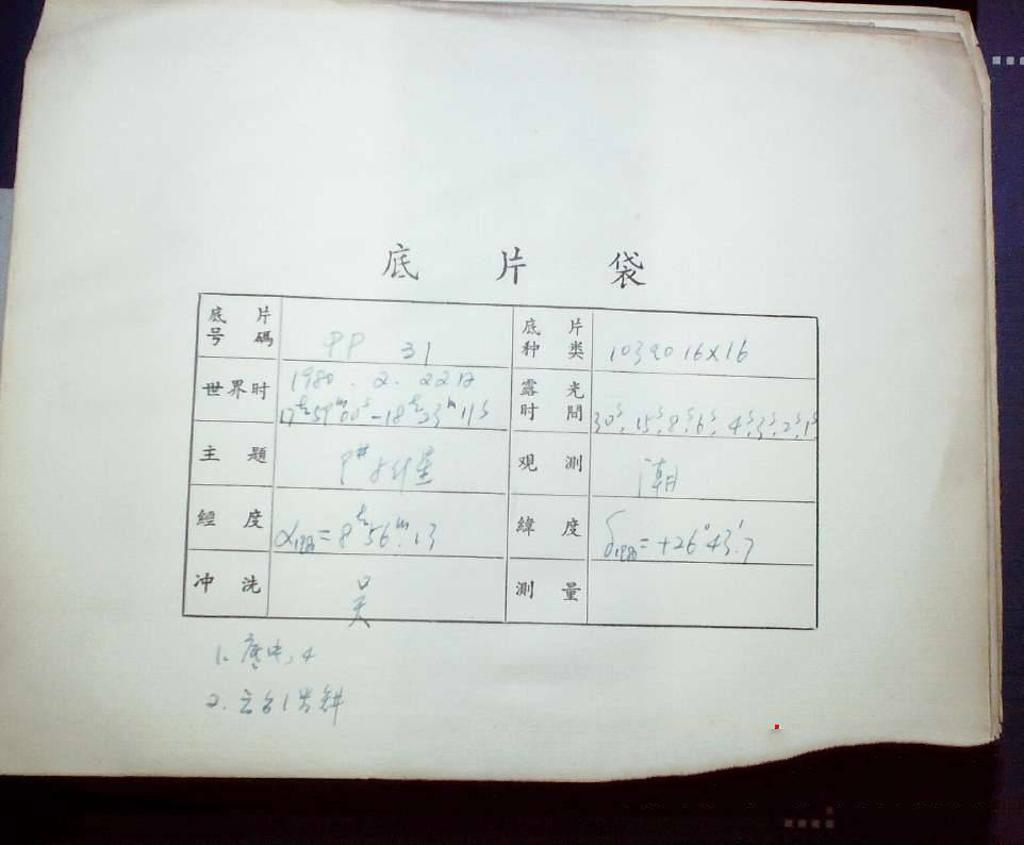 底 片 袋
底 片
号 碼
PP 31
底 片
种 类
103aO 16×16
世界时
1980. 2. 22日
17h59m00s-18h23m11s
露 光
时 間
30s, 15s, 8s, 6s, 4s, 3s, 2s, 1s
主 题
观 測
潮
經 度
α1980=8h56m.13
緯 度
δ1980=+26°43'.7
冲 洗
吴
測 量
1.
2.